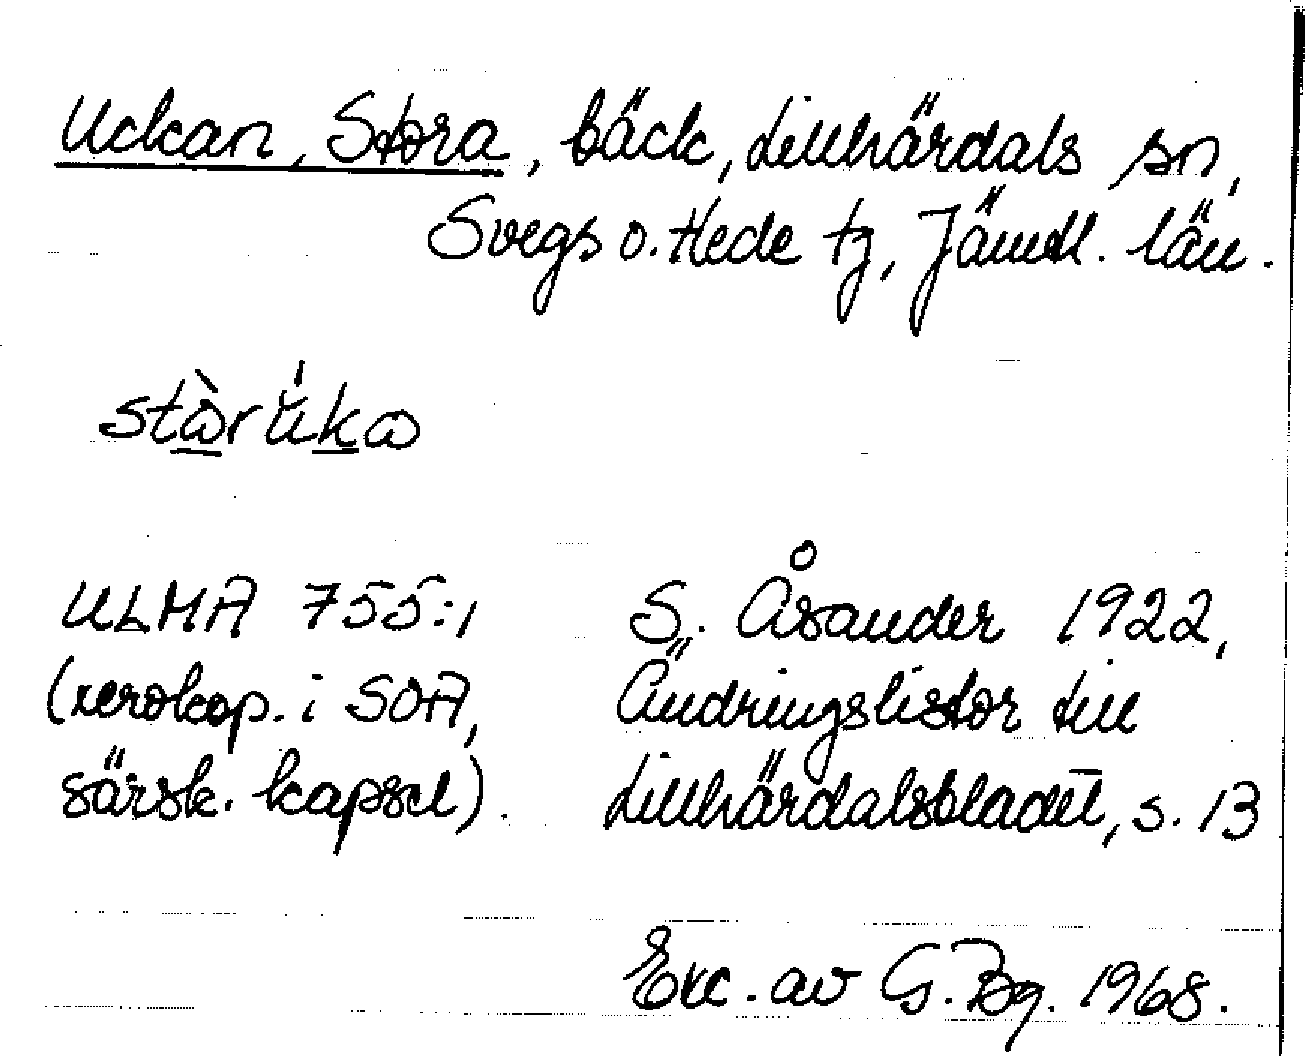 Uckan, Stora, bäck, Lillhärdals sn,
Svegs o. Hede tg, Jämtl. län.
ULMA 755:1 S. Åsander 1922,
(xerokop. i SOA, Ändringslistor till
särsk. kapsel). Lillhärdalsbladet, s. 13
Exc. av G. Bg. 1968.